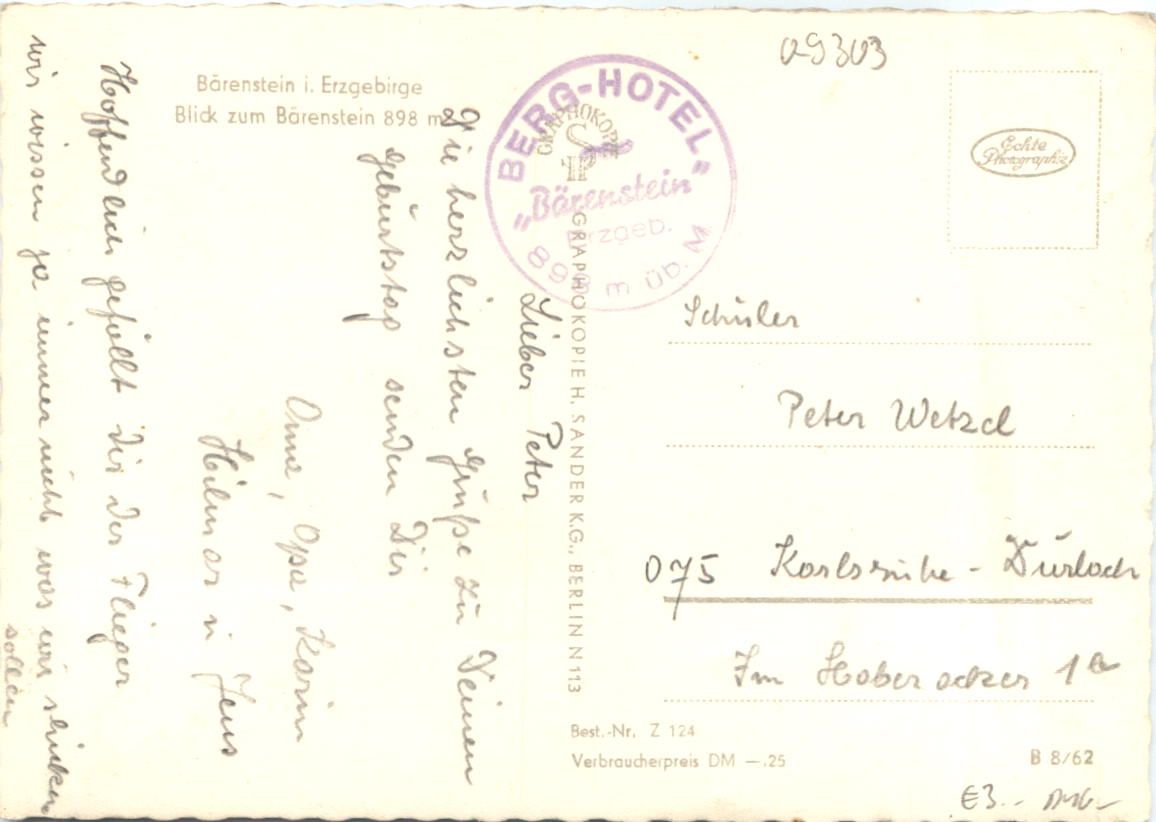 09303
Bärenstein i. Erzgebirge
Blick zum Bärenstein 898 m
BERG-HOTEL
„Bärenstein"
Erzgeb.
898 m üb. M
GRAPHOKOPIE
GRAPHOKOPIE H. SANDER K.G., BERLIN N 113
Echte
Photographie
Lieber Peter
Die herzlichsten Grüße zu Deinen
Geburtstag senden Dir
Oma, Opa, Karin
Hilmar u Jens
Hoffendlich gefällt dir der Flieger
wir wissen ja immer nicht was wir schicken
sollen
Schüler
Peter Wetzel
075 Karlsruhe-Durlach
Im Haberacker 1
Best.-Nr. Z 124
Verbraucherpreis DM —.25
B 8/62
€3.-